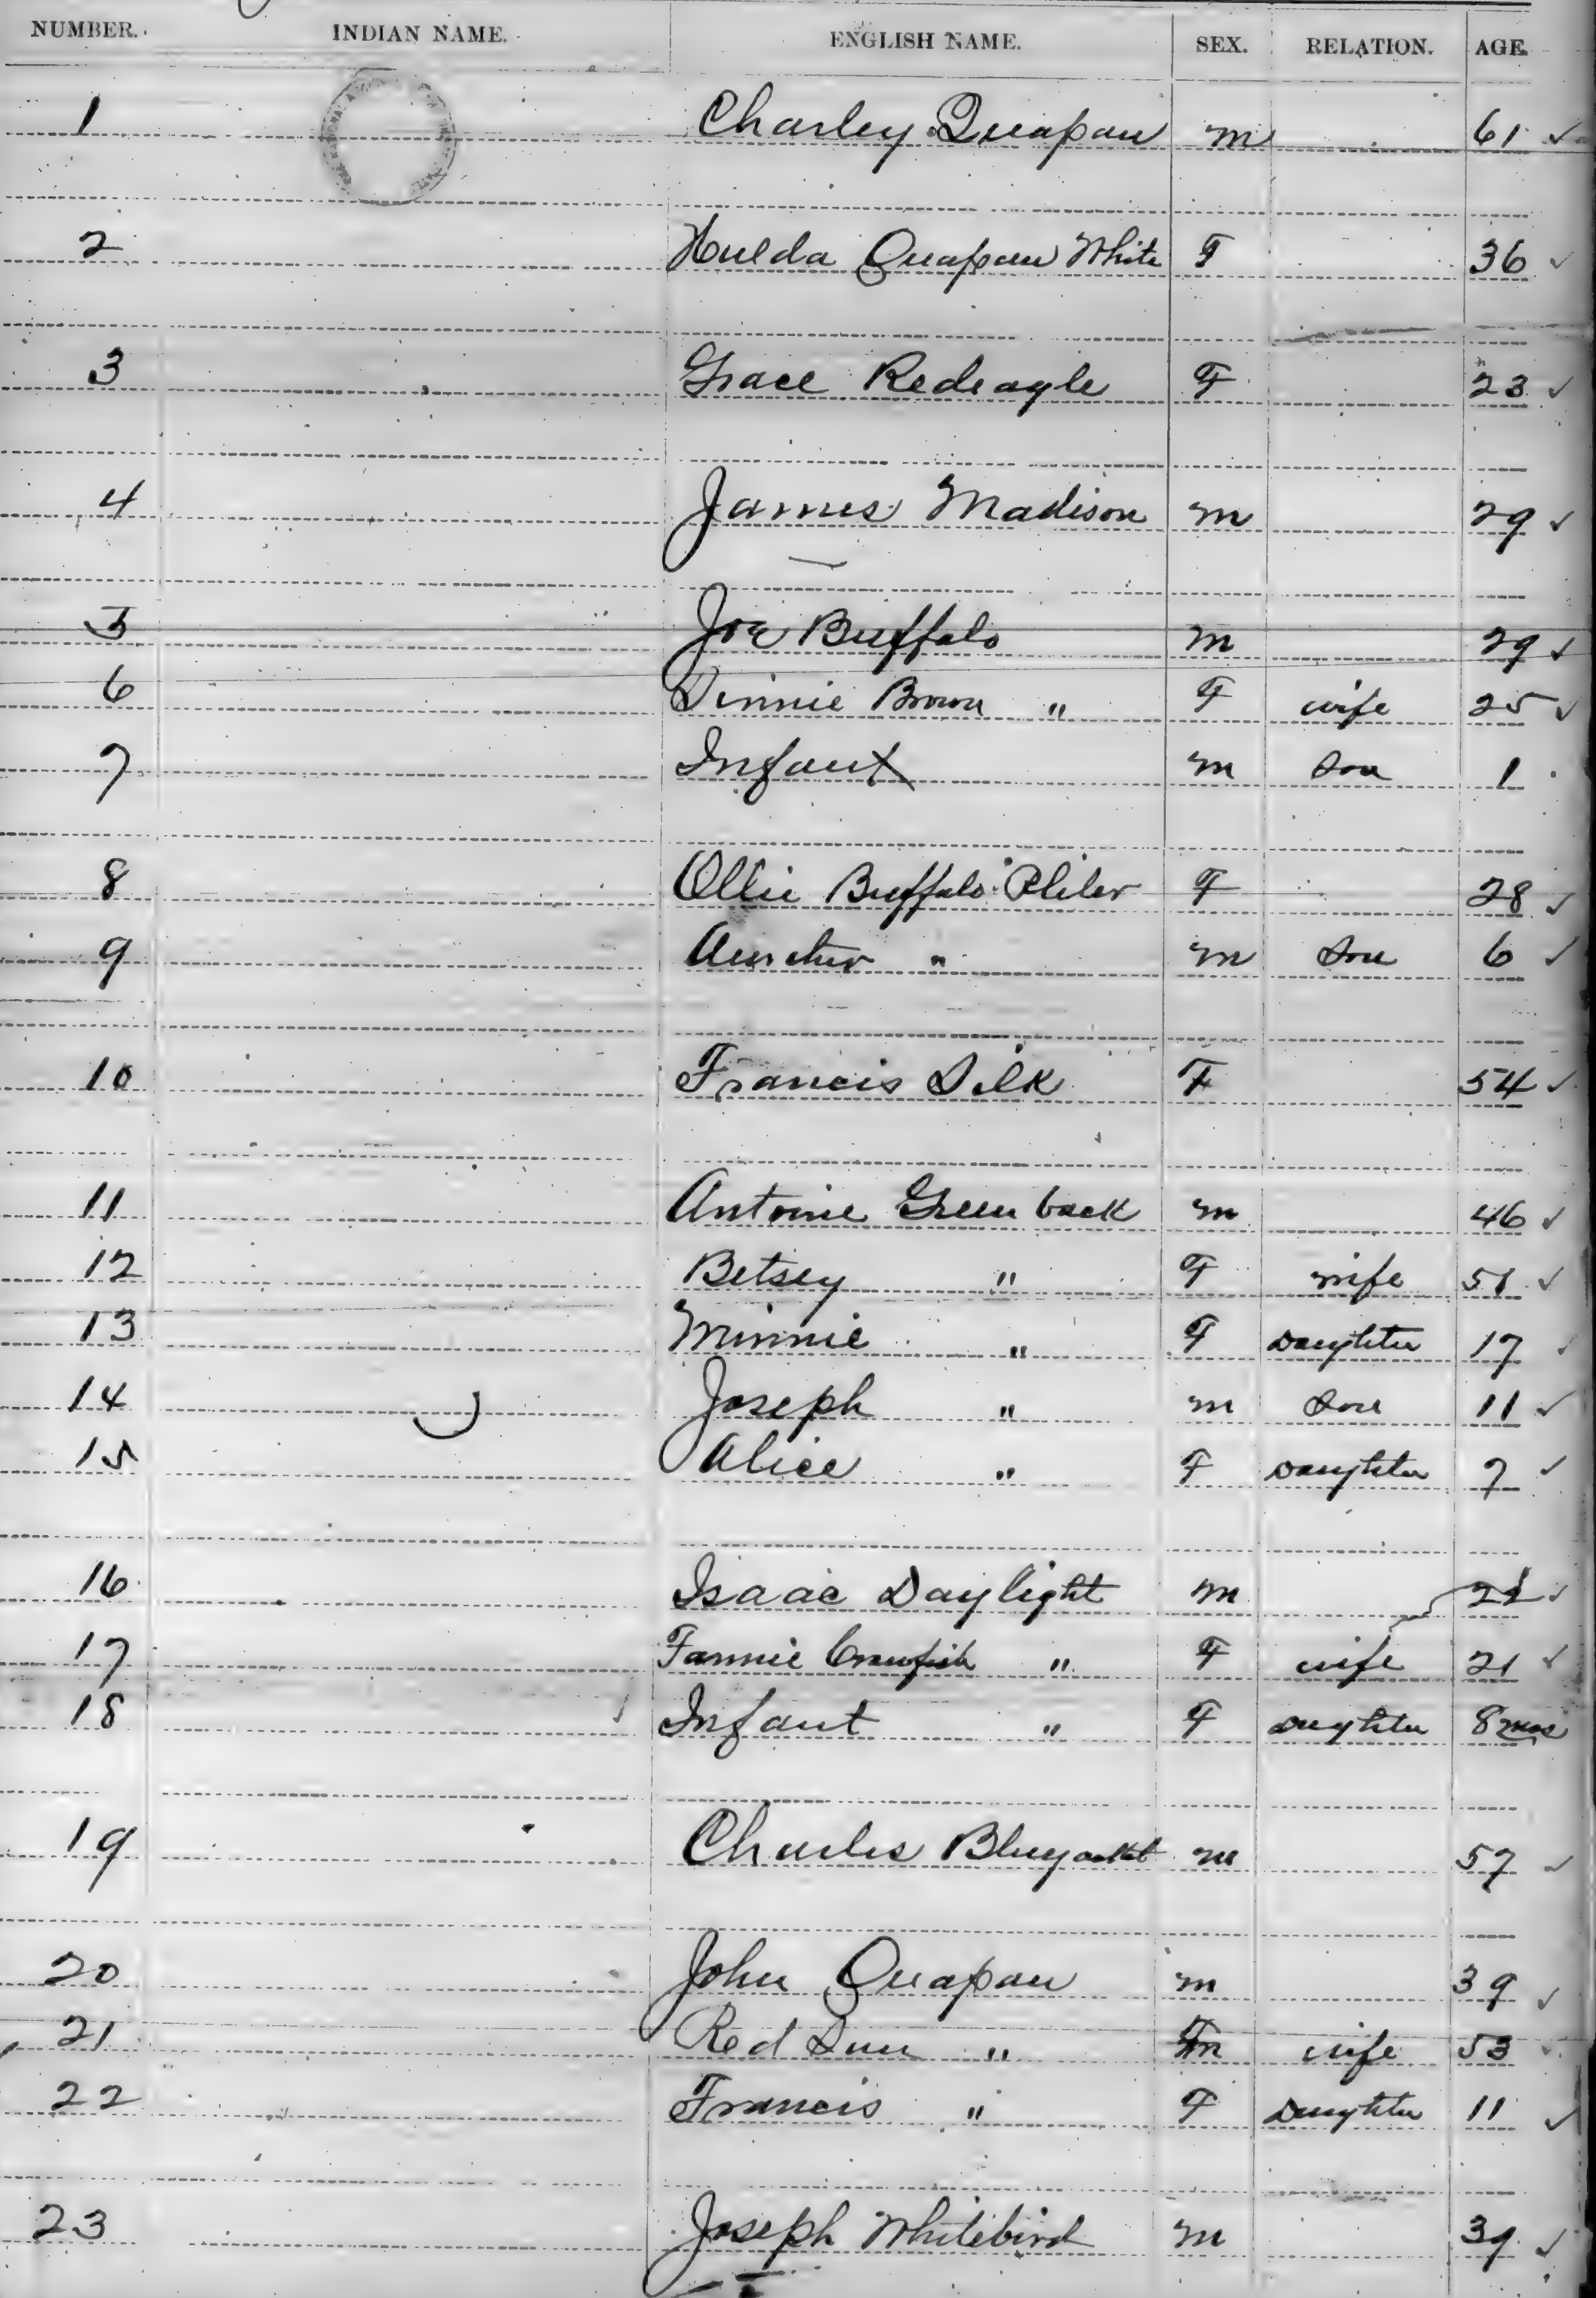 NUMBER. INDIAN NAME. ENGLISH NAME. SEX. RELATION. AGE.
1 Charley Quapaw m 61 ✓
2 Hulda Quapaw White F 36 ✓
3 Grace Redeagle F 23 ✓
4 James Madison m 29 ✓
5 Joe Buffalo m 29 ✓
6 Brown " F wife 25 ✓
7 Infant m Son 1
8 Ollie Buffalo Pliler F 28 ✓
9 " m Son 6 ✓
10 Francis Silk F 54 ✓
11 Antoine Green back m 46 ✓
12 Betsey " F wife 51 ✓
13 Minnie " F Daughter 17 ✓
14 Joseph " m Son 11 ✓
15 Alice " F Daughter 7 ✓
16 Isaac Daylight m ✓
17 Fannie Crawfish " F wife 21 ✓
18 Infant " F Daughter 8 mos
19 Charles Bluejacket m 57 ✓
20 John Quapaw m 39 ✓
21 Red Sun " wife 53 ✓
22 Francis " F Daughter 11 ✓
23 Joseph Whitebird m 39 ✓